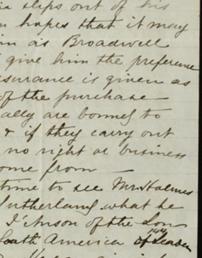 slips out of his
hopes that it may
in as Broadwell
give him the preference
insurance is given as
of the purchase
ally are bound to
& if they carry out
no right at business
ome from
time to see Mr Holmes
Sutherland what he
of the Lon
South America of London